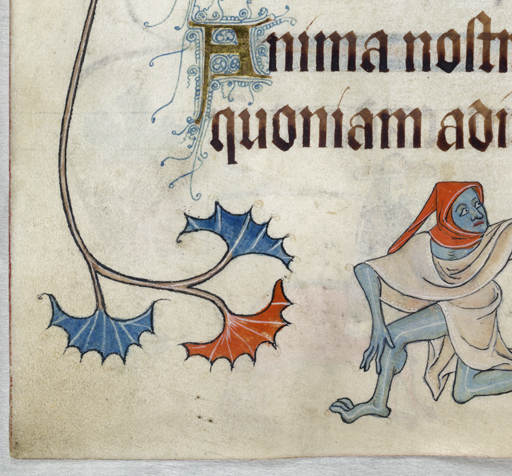 Anima nostr
quoniam adi